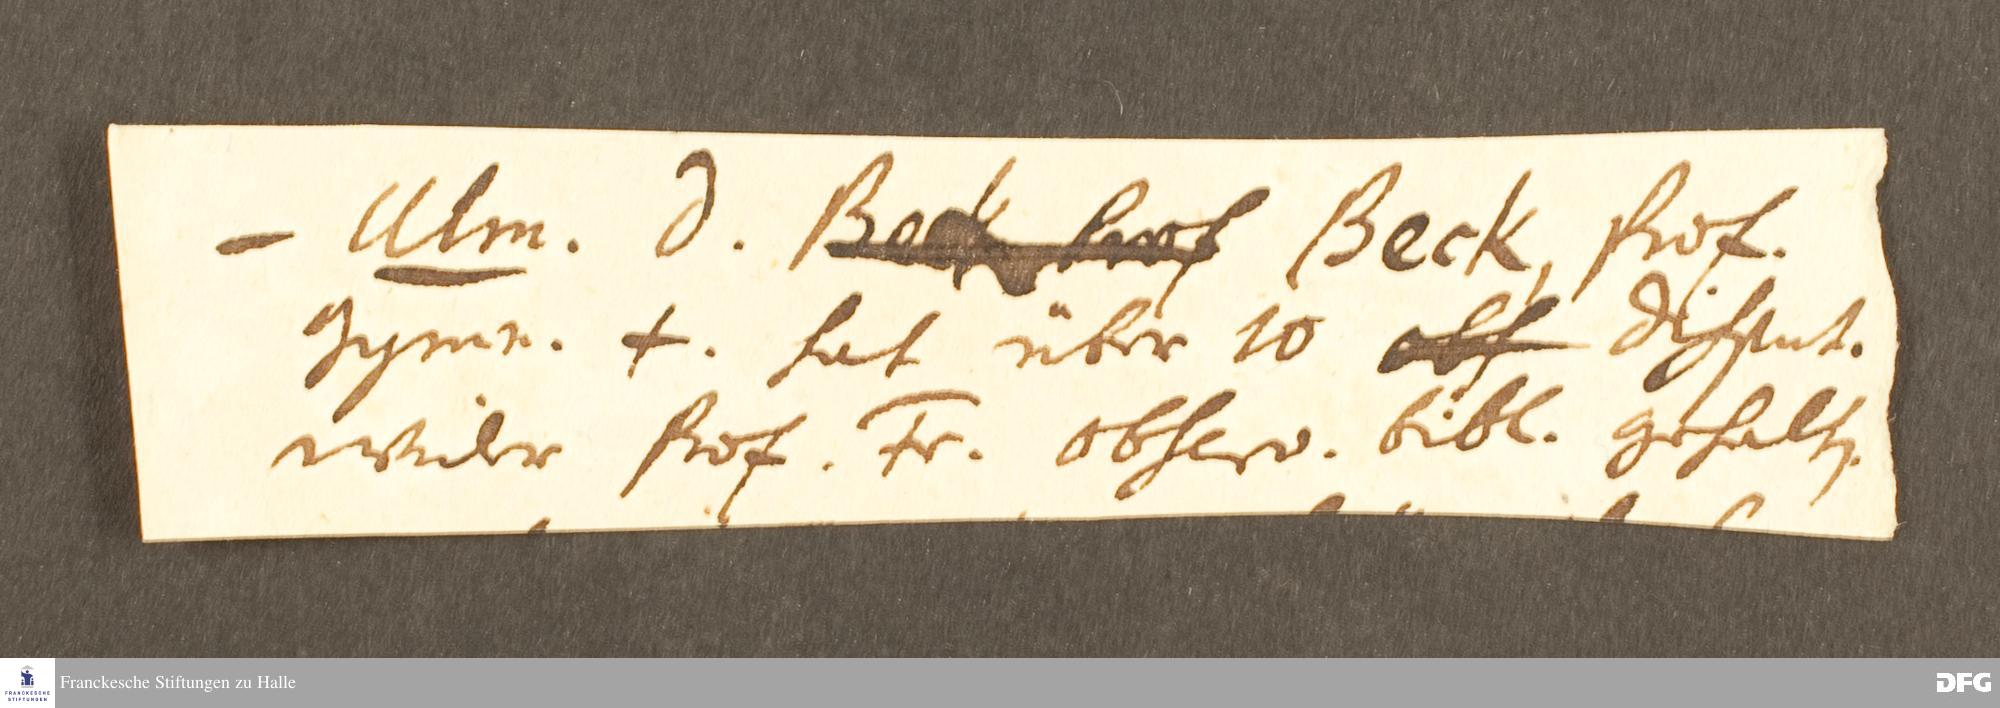 – Ulm. D. Beck Prof Beck, Prof.
Gymn. †. hat über 10 obs disput.
wider Prof. Fr. observ. bibl. gehalt.
FRANCKESCHE
STIFTUNGEN
Franckesche Stiftungen zu Halle
DFG